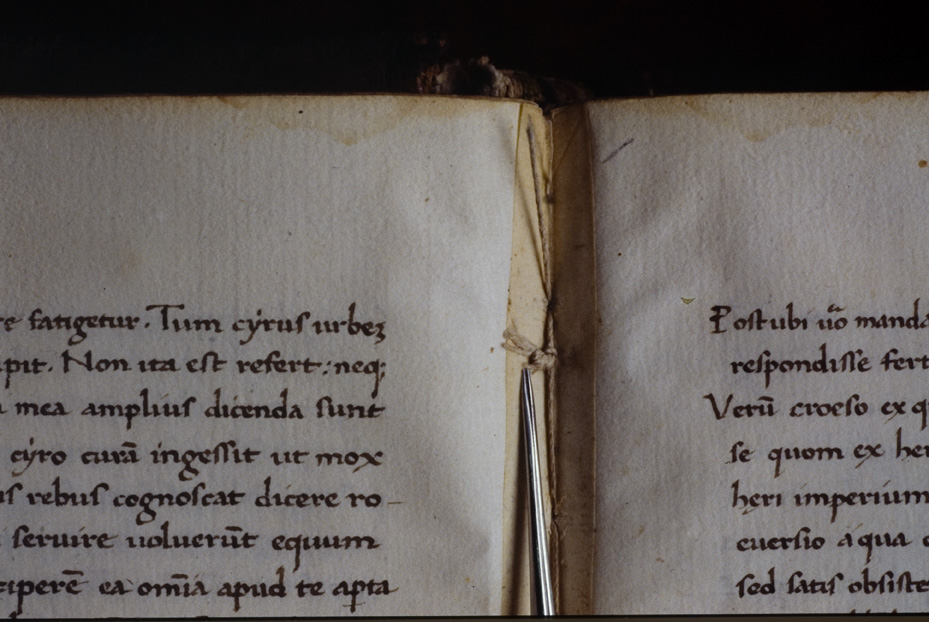 fatigetur. Tum cyrus urbeʒ
Non ita est refert: neqʒ
mea amplius dicenda sunt
cyro curā ingessit ut mox
rebus cognoscat dicere ro-
seruire uoluerūt equum
ea om̄ia apud te apta
Post ubi uō
respondisse
Verū croeso ex
se quom ex
heri imperium
euersio aqua
sed satis